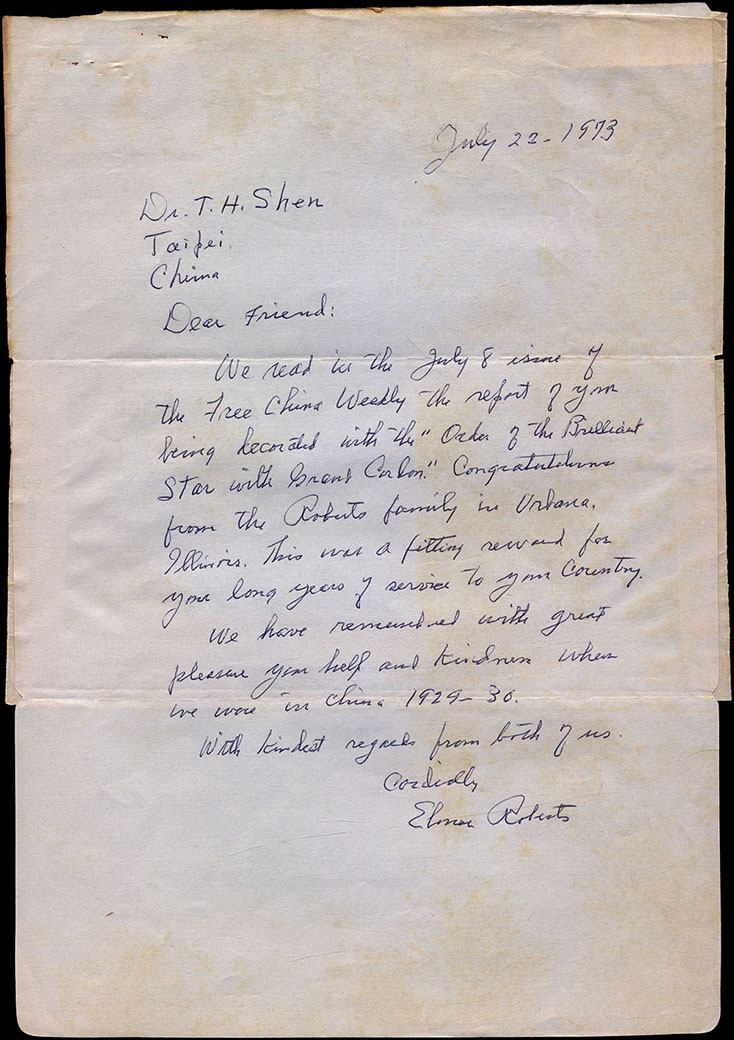 July 22- 1973
Dr. T. H. Shen
Taipei
China
Dear Friend:
We read in the July 8 issue of
the Free China Weekly the report of your
being decorated with the "Order of the Brilliant
Star with Grand Cordon." Congratulations
from the Roberts family in Urbana,
Illinois. This was a fitting reward for
your long years of service to your Country.
We have remembered with great
pleasure your help and kindness when
we were in China 1929-30.
With kindest regards from both of us.
Cordially
Roberts